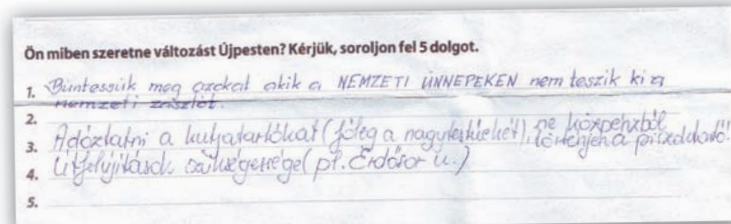 Ön miben szeretne változást Újpesten? Kérjük, soroljon fel 5 dolgot.
1. Büntessük meg azokat akik a NEMZETI ÜNNEPEKEN nem teszik ki a
nemzeti zászlót.
2.
3. Adóztatni a kutyatartókat (főleg a nagytestűekét), ne közpénzből történjen a
4. Útfelújítások szükségessége (pl. Erdősor u.)
5.